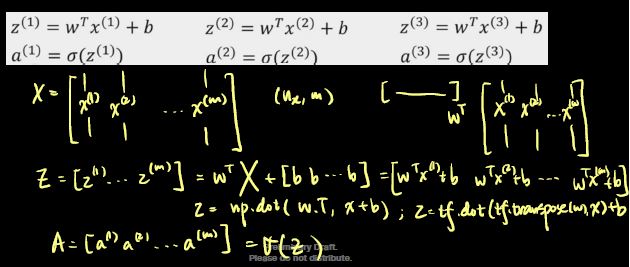 z⁽¹⁾ = wᵀx⁽¹⁾ + b z⁽²⁾ = wᵀx⁽²⁾ + b z⁽³⁾ = wᵀx⁽³⁾ + b
a⁽¹⁾ = σ(z⁽¹⁾) a⁽²⁾ = σ(z⁽²⁾) a⁽³⁾ = σ(z⁽³⁾)
X = [x⁽¹⁾ x⁽²⁾ ... x⁽ᵐ⁾] (nₓ, m) [ — ] wᵀ [x⁽¹⁾ x⁽²⁾ ... x⁽ᵐ⁾]
Z = [z⁽¹⁾ ... z⁽ᵐ⁾] = wᵀX + [b b ... b] = [wᵀx⁽¹⁾+b wᵀx⁽²⁾+b --- wᵀx⁽ᵐ⁾+b]
z = np.dot(w.T, x+b) ; z = tf.dot(tf.transpose(w),x)+b
A = [a⁽¹⁾ a⁽²⁾ ... a⁽ᵐ⁾] = σ(z)
Draft.
Please do not distribute.